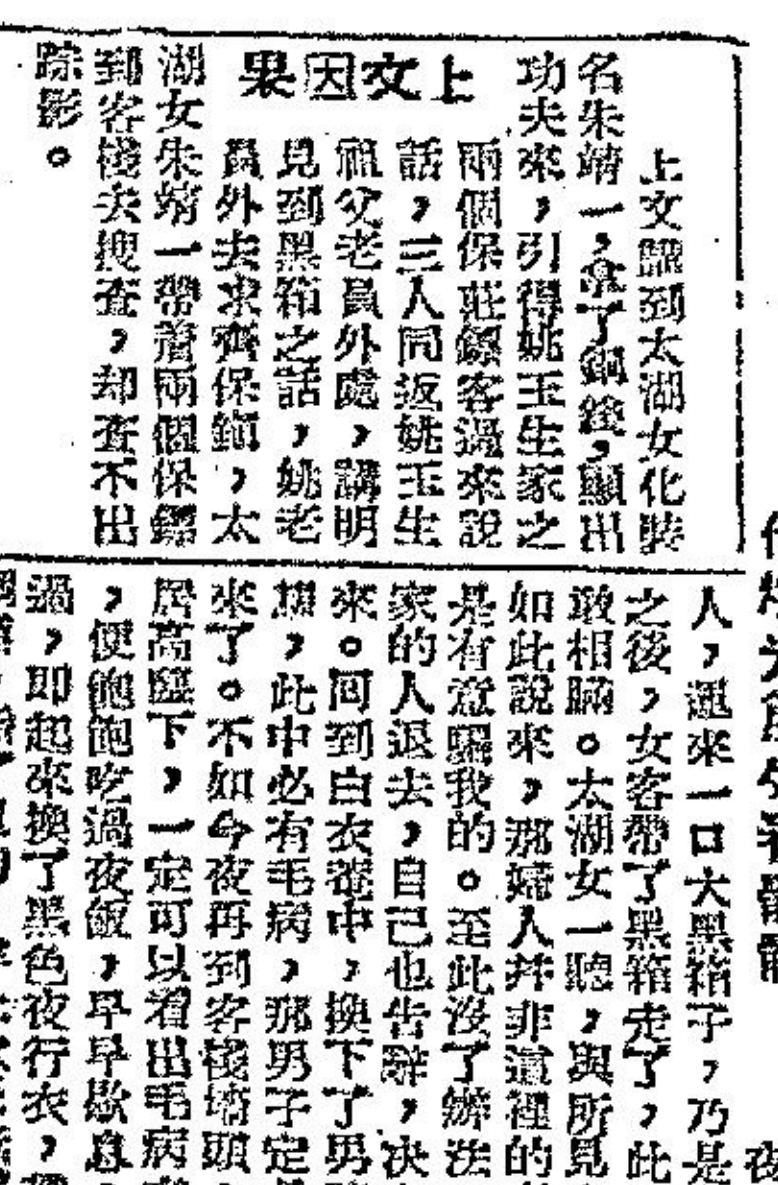 上文因果
上文說到太湖女化裝
名朱靖一，拿了銅錢，顯出
功夫來，引得姚玉生家之
兩個保莊鏢客過來說
話，三人同返姚玉生
祖父老員外處，講明
見到黑箱之話，姚老
員外去求齊保鎮，太
湖女朱靖一帶着兩個保鏢
到客棧去搜查，却查不出
踪影。
人，運來一口大黑箱子，乃是
之後，女客帶了黑箱走了，此
敢相瞞。太湖女一聽，與所見
如此說來，那婦人并非這裡的
是有意騙我的。至此沒了辦法
家的人退去，自己也告辭，决
來。回到白衣菴中，換下了男
想，此中必有毛病，那男子定
來了。不如今夜再到客棧墻頭
居高臨下，一定可以看出毛病
，便飽飽吃過夜飯，早早歇息
過，即起來換了黑色夜行衣，
夜